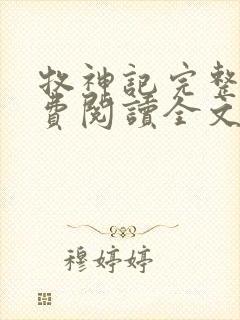 牧神記完整
費閱讀全文
穆婷婷